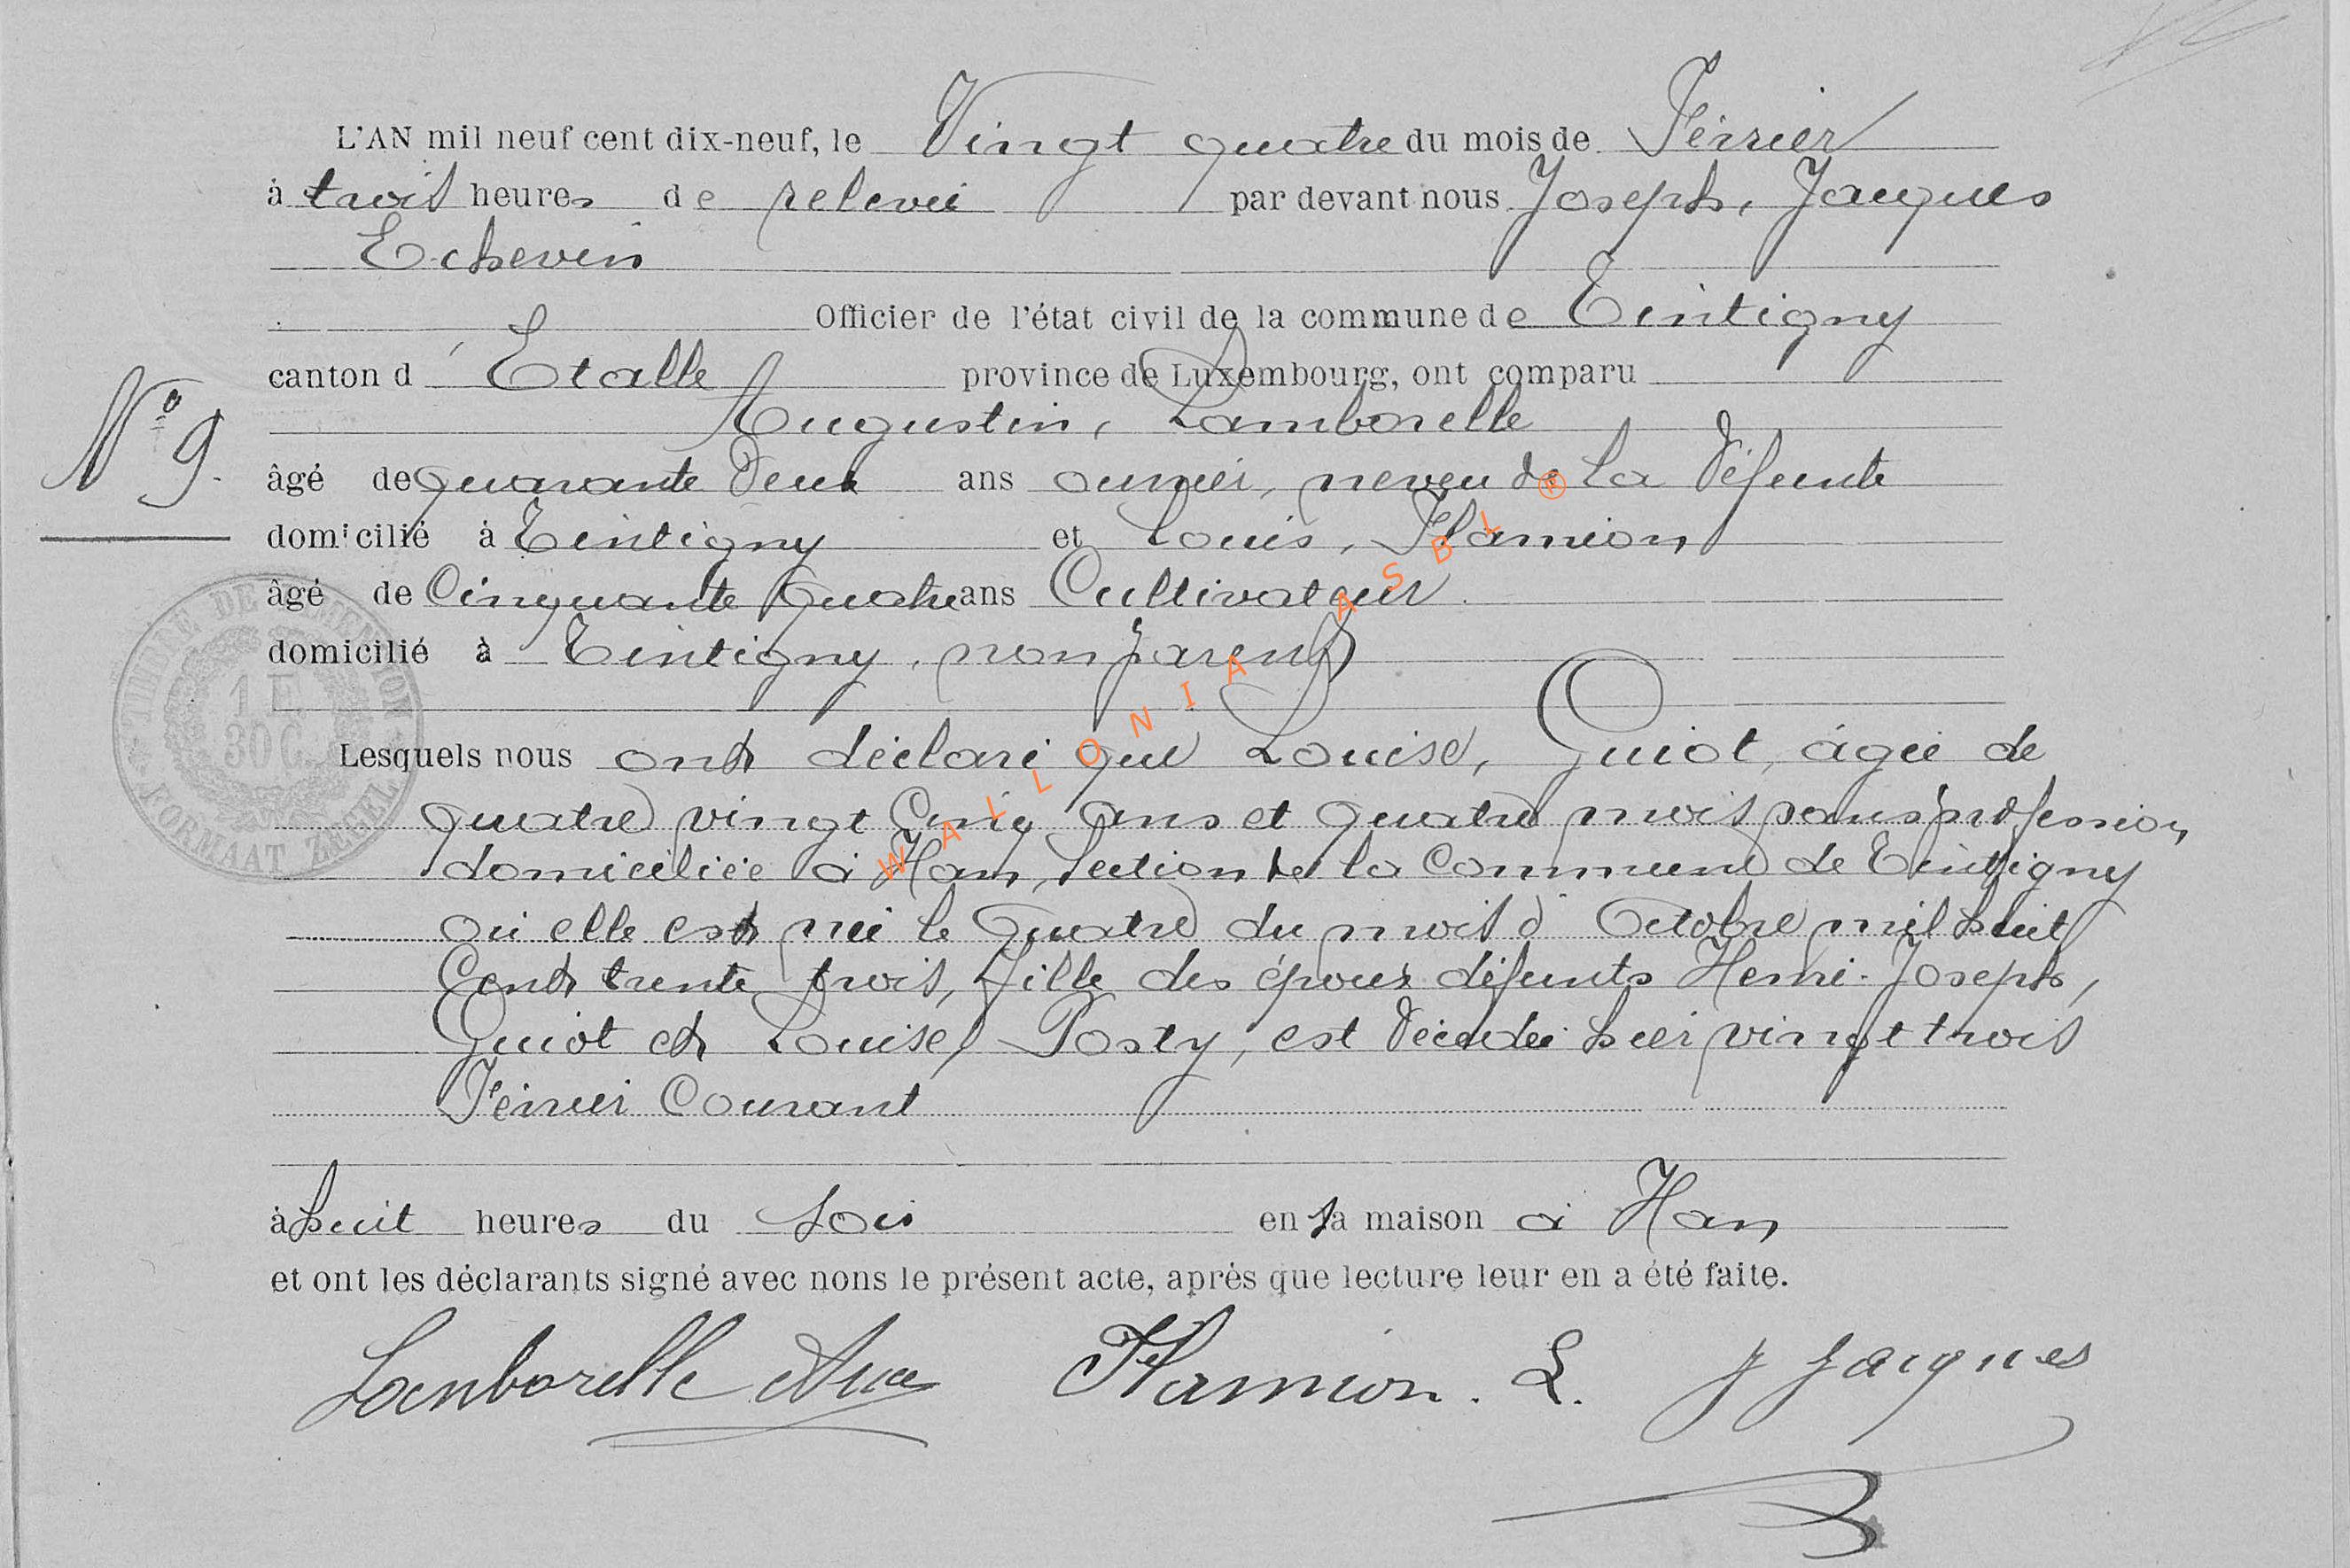 L'AN mil neuf cent dix-neuf, le Vingt quatre du mois de Février
à trois heures de relevée par devant nous Joseph, Jacques
Echevin
Officier de l'état civil de la commune de Tintigny
canton d'Etalle province de Luxembourg, ont comparu
Augustin, Lamborelle
N° 9.
âgé de quarante deux ans ouvrier, neveu de la défunte
domicilié à Tintigny et Louis, Flamion
âgé de Cinquante quatre ans Cultivateur
domicilié à Tintigny, non parent
TIMBRE DE DIMENSION
1 F.
30 C.
FORMAAT ZEGEL
Lesquels nous ont déclaré que Louise, Guiot, âgée de
quatre vingt Cinq ans et quatre mois sans profession
domiciliée à Han, section de la Commune de Tintigny
où elle est née le quatre du mois d'Octobre mil huit
Cent trente trois, fille des époux défunts Henri-Joseph,
Guiot et Louise, Posty, est décédée hier vingt trois
Février Courant
à huit heures du soir en sa maison à Han
et ont les déclarants signé avec nons le présent acte, après que lecture leur en a été faite.
Lamborelle Flamion. L. J Jacques
WALLONIA ASBL ®